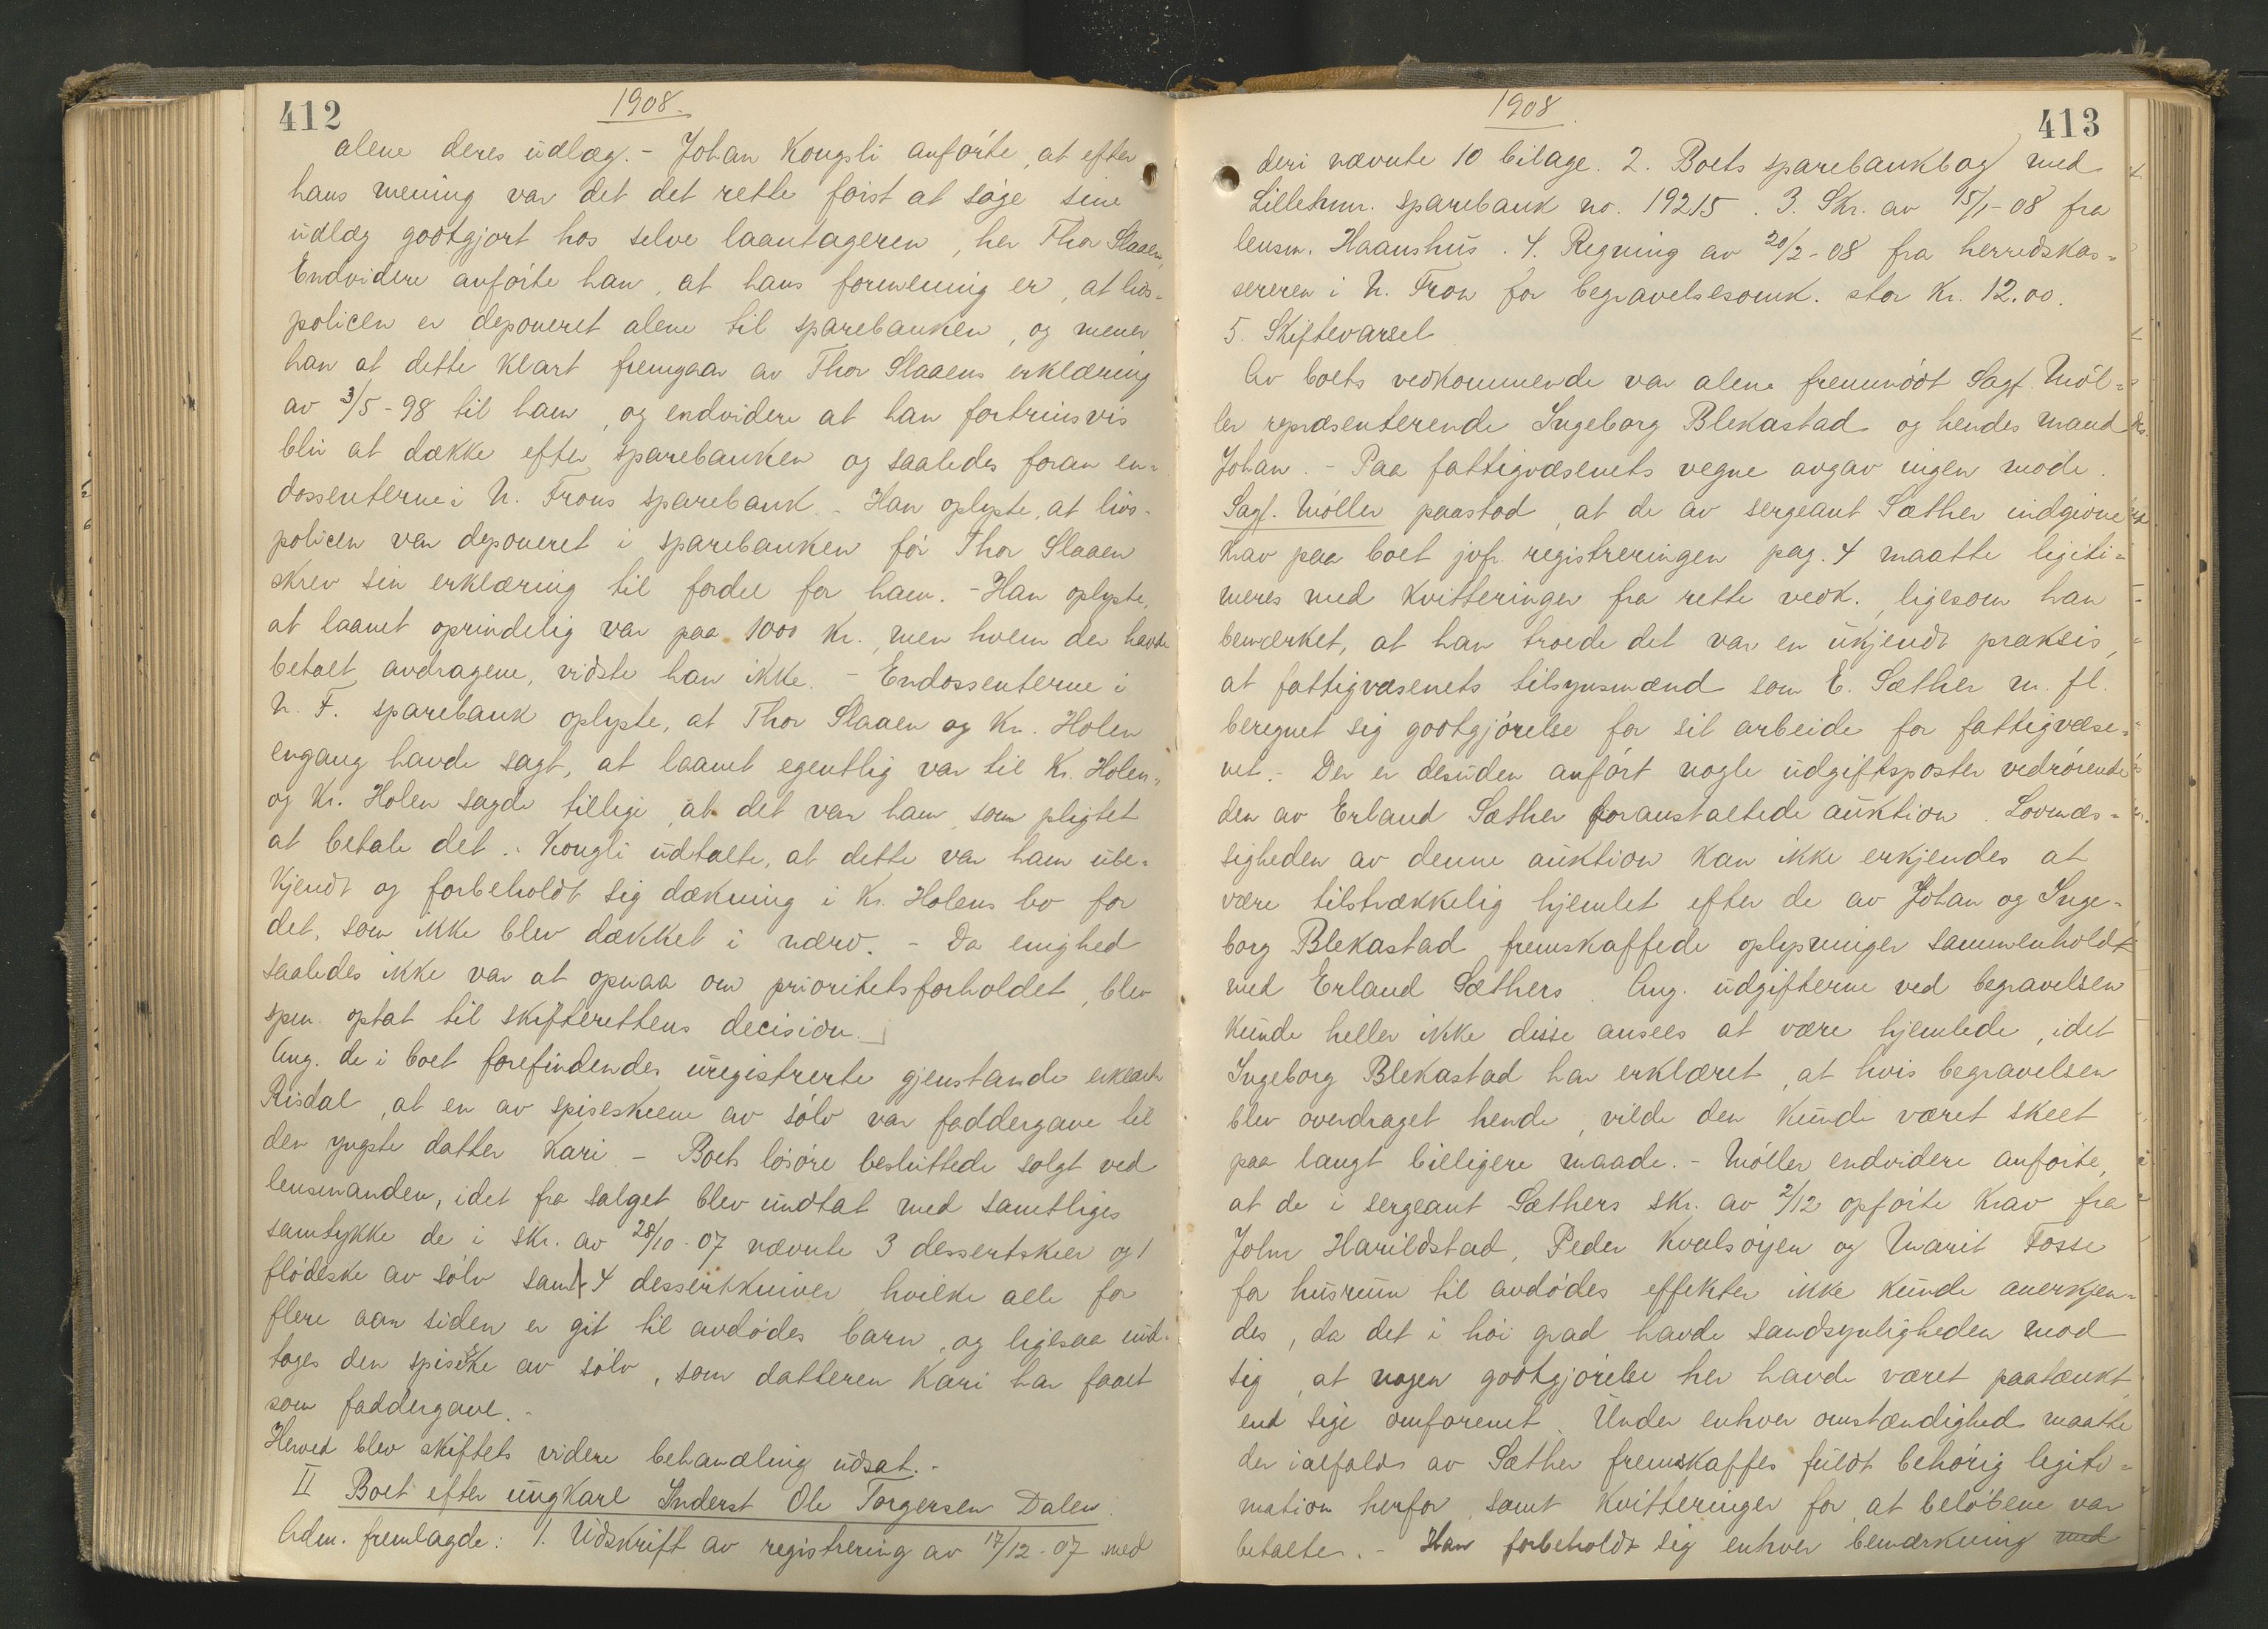 412
1908.
alene deres udlæg. - Johan Kongsli anførte, at efter
hans mening var det det rette først at søge sine
udlæg godtgjort hos selve laantageren, her Thor Slaaen,
Endvidere anførte han, at hans formening er, at livs-
policen er deponeret alene til sparebanken, og mener
han at dette klart fremgaar av Thor Slaaens erklæring
av 3/5-98 til ham, og endvidere at han fortrinsvis
blir at dække efter sparebanken og saaledes foran en-
dossenterne i N. Frons sparebank. - Han oplyste, at livs-
policen var deponeret i sparebanken før Thor Slaaen
skrev sin erklæring til fordel for ham. - Han oplyste,
at laanet oprindelig var paa 1000 kr., men hvem der havde
betalt avdragene, vidste han ikke. - Endossenterne i
N. F. sparebank oplyste, at Thor Slaaen og Kr. Holen
engang havde sagt, at laanet egentlig var til Kr. Holen,
og Kr. Holen sagde tillige at det var ham som pligtet
at betale det. - Kongli udtalte, at dette var ham ube-
kjendt og forbeholdt sig dækning i Kr. Holens bo for
det, som ikke blev dækket i nærv. - Da enighed
saaledes ikke var at opnaa om prioritetsforholdet, blev
spm. optat til skifterettens decision.
Ang. de i boet forefindendes uregistrerte gjenstande erklærte
Risdal, at en av spiseskeene av sølv var faddergave til
den yngste datter Kari - Boets løsøre besluttede solgt ved
lensmanden, idet fra salget blev undtat med samtliges
samtykke de i skr. av 28/10-07 nævnte 3 dessertskeer og 1
flødeske av sølv samt 4 dessertkniver, hvilke alle for
flere aar siden er git til avdødes barn, og ligesaa und-
tages den spiseske av sølv, som datteren Kari har faaet
som faddergave. -
Herved blev skiftets videre behandling udsat. -
II Boet efter ungkarl Inderst Ole Torgersen Dalen.
Adm. fremlagde: 1. Udskrift av registrering av 17/12-07 med
1908.
413
deri nævnte 10 bilage. 2. Boets sparebankbog med
Lillehmr. sparebank no. 19215. 3. Skr. av 15/1-08 fra
lensm. Haanshus. 4. Regning av 20/2-08 fra herredskas-
sereren i N. Fron for begravelsesomk. stor kr. 12.00.
5. Skiftevarsel
Av boets vedkommende var alene fremmødt Sagf. Møl-
ler repræsenterende Ingeborg Blekastad og hendes mand
Johan. - Paa fattigvæsenets vegne avgav ingen møde.
Sagf. Møller paastod, at de av sergeant Sæther indgivne
krav paa boet jvfr. registreringen pag. 4 maatte legiti-
meres med kvitteringer fra rette vedk., ligesom han
bemærket, at han troede det var en ukjendt praksis,
at fattigvæsenets tilsynsmænd som E. Sæther m. fl.
beregnet sig godtgjørelse for sit arbeide for fattigvæse-
net. - Der er desuden anført nogle udgiftsposter vedrørende
den av Erland Sæther foranstaltede auktion. Lovmæs-
sigheden av denne auktion kan ikke erkjendes at
være tilstrækkelig hjemlet efter de av Johan og Inge-
borg Blekastad fremskaffede oplysninger sammenholdt
med Erland Sæthers. Ang. udgifterne ved begravelsen
kunde heller ikke disse ansees at være hjemlede, idet
Ingeborg Blekastad har erklæret, at hvis begravelsen
blev overdraget hende, vilde den kunde været skeet
paa langt billigere maade. - Møller endvidere anførte,
at de i sergeant Sæthers skr. av 2/12 opførte krav fra
John Harildstad, Peder Kvalsøyen og Marit Fosse
for husrum til avdødes effekter ikke kunde anerkjen-
des, da det i høi grad havde sandsynligheden mod
sig, at nogen godtgjørelse her havde været paatænkt
end sige omforenet. Under enhver omstændighed maatte
der ialfald av Sæther fremskaffes fuldt behørig legiti-
mation herfor, samt kvitteringer for at beløbene var
betalte. - Han forbeholdt sig enhver bemærkning med